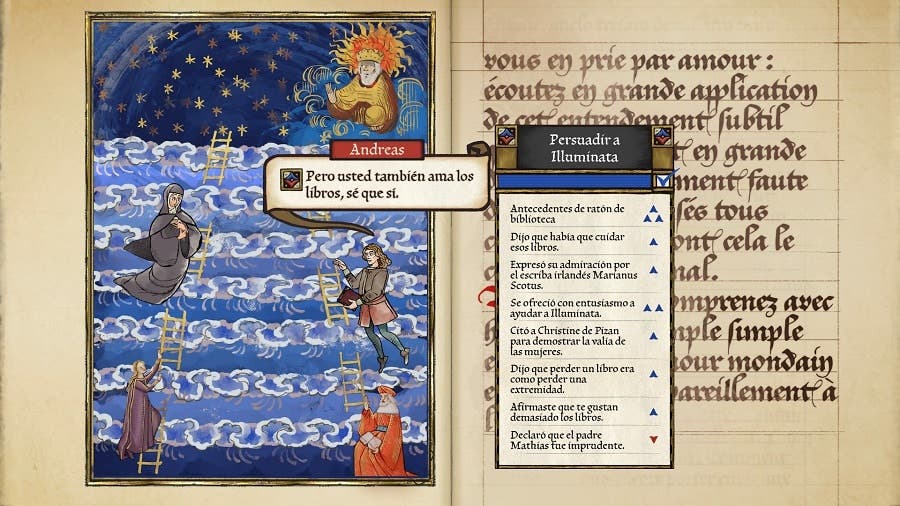 Andreas
Pero usted también ama los
libros, sé que sí.
vous en prie par amour :
écoutez en grande application
de cet entendement subtil
en grande
ment faute
sés tous
ont cela le
mal.
omprenez avec
mple simple
our mondain
pareillement à
Persuadir a
Illuminata
Antecedentes de ratón de
biblioteca
Dijo que había que cuidar
esos libros.
Expresó su admiración por
el escriba irlandés Marianus
Scotus.
Se ofreció con entusiasmo a
ayudar a Illuminata.
Citó a Christine de Pizan
para demostrar la valía de
las mujeres.
Dijo que perder un libro era
como perder una
extremidad.
Afirmaste que te gustan
demasiado los libros.
Declaró que el padre
Mathias fue imprudente.